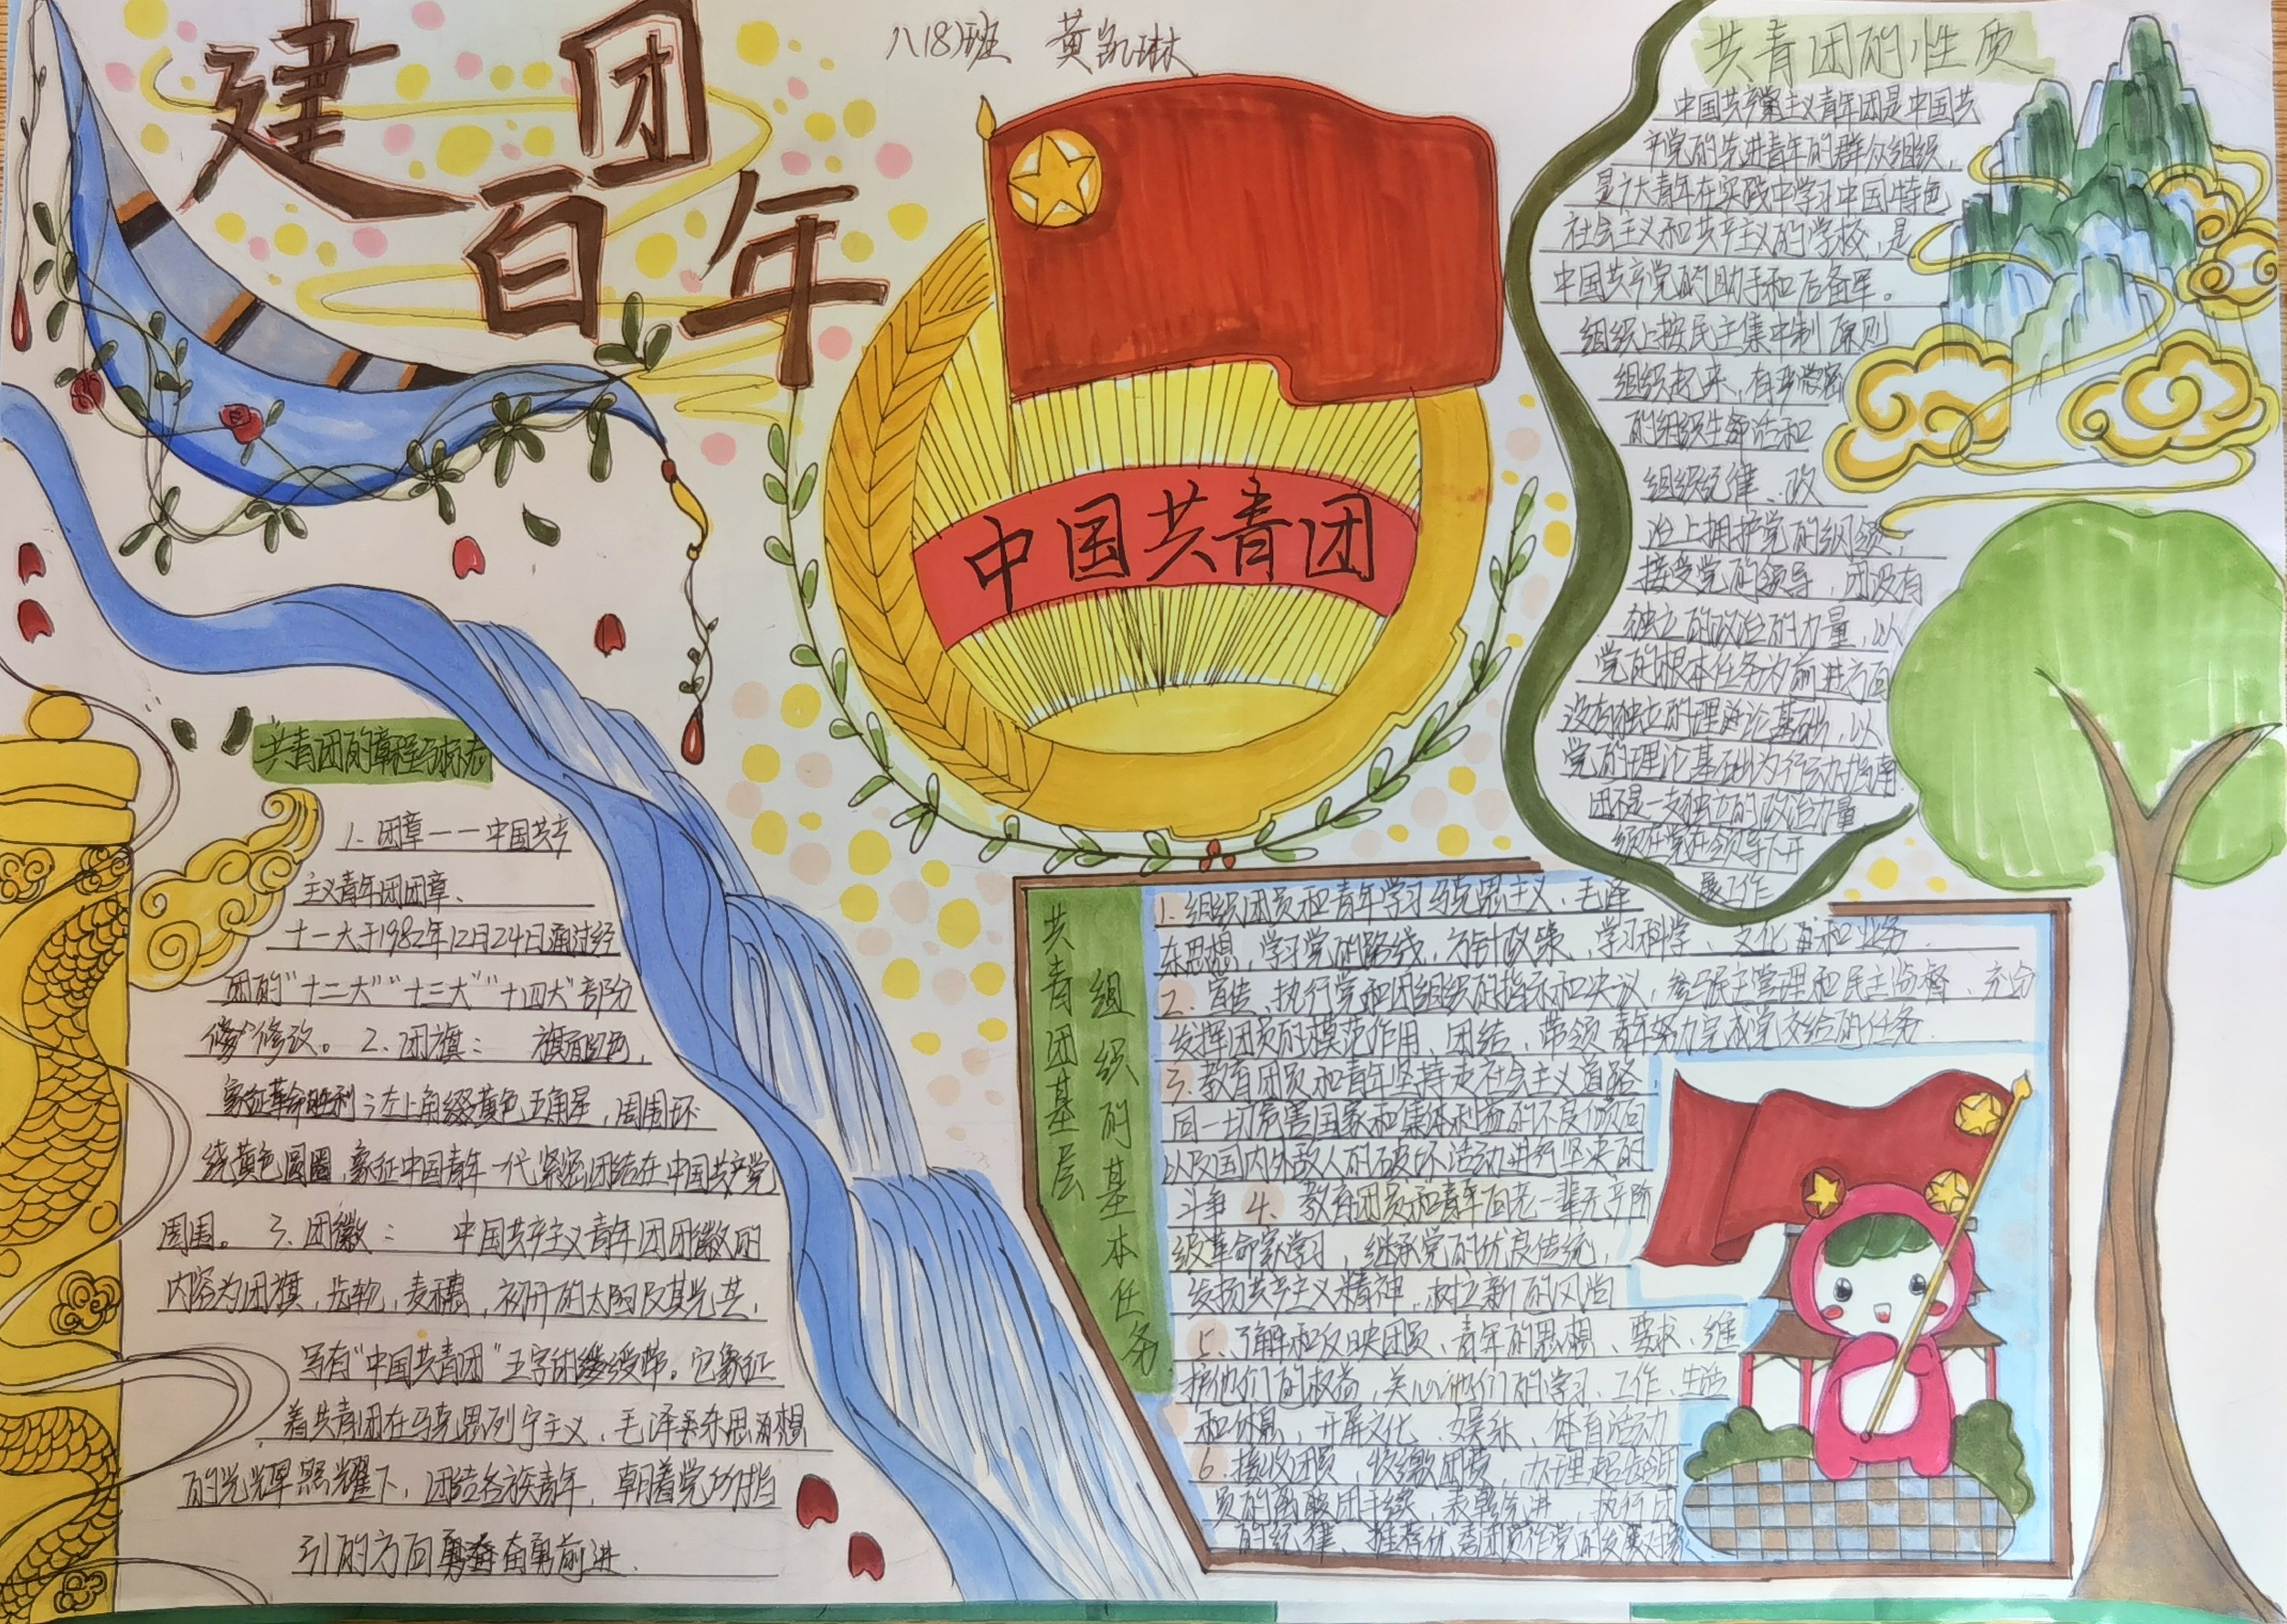 建团
百年
八(8)班 黄凯琳
中国共青团
共青团的性质
中国共产主义青年团是中国共
产党的先进青年的群众组织,
是广大青年在实践中学习中国特色
社会主义和共产主义的学校,是
中国共产党的助手和后备军。
组织上按民主集中制原则
组织起来,有
的组织生活和
组织纪律、政
治上拥护党的纲领,
接受党的领导,团没有
独立的政治的力量,以
党的根本任务为前进方向
没有独立的理论基础,以
党的理论基础为行动指南
团不是一支独立的政治力量
须在党在领导下开
展工作
共青团的章程与标志
1、团章一一中国共产
主义青年团团章、
十一大于1982年12月24日通过经
团的“十二大”“十三大”“十四大”部分
修改。2、团旗: 旗面红色,
象征革命胜利;左上角缀黄色五角星,周围环
绕黄色圆圈,象征中国青年一代紧密团结在中国共产党
周围。3、团徽: 中国共产主义青年团团徽的
内容为团旗,齿轮,麦穗,初升的太阳及其光芒,
写有“中国共青团”五字的绶带。它象征
着共青团在马克思列宁主义,毛泽东思想
的光辉照耀下,团结各族青年,朝着党所指
引的方向奋勇前进.
共青团基层
组织的基本任务
1、组织团员和青年学习马克思主义、毛泽
东思想,学习党的路线,方针政策,学习科学、文化和业务.
2、宣传、执行党和团组织的指示和决议,参与民主管理和民主监督、充分
发挥团员的模范作用、团结,带领青年努力完成党交给的任务.
3、教育团员和青年坚持走社会主义道路,
同一切危害国家和集体利益的不良倾向
以及国内外敌人的破坏活动进行坚决的
斗争 4、教育团员和青年向老一辈无产阶
级革命家学习,继承党的优良传统,
发扬共产主义精神,树立新的风尚
5、了解和反映团员、青年的思想、要求、维
护他们的权益,关心他们的学习、工作、生活
和休息,开展文化、娱乐、体育活动
6、接收团员,收缴团费,办理超龄团
员的离职团手续,表彰先进,执行团
的纪律、推荐优秀团员作党的发展对象